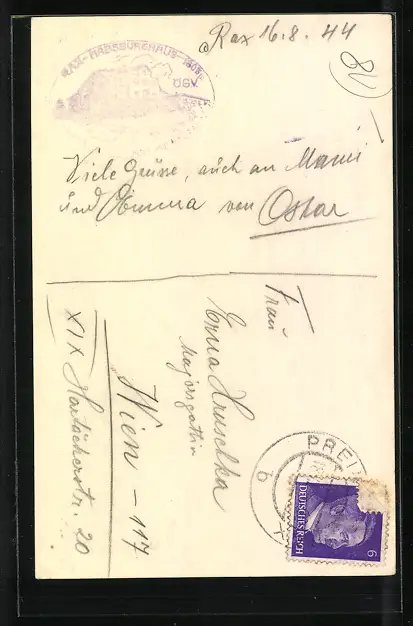 Rax 16.8.44
RAX-HABSBURGHAUS
Viele Grüsse, auch an Mami
und Omma von Oskar
Frau
Erna Hruschka
Majorsgattin
Wien - 117
XIX Hartäckerstr. 20
PREI
b
DEUTSCHES REICH
6